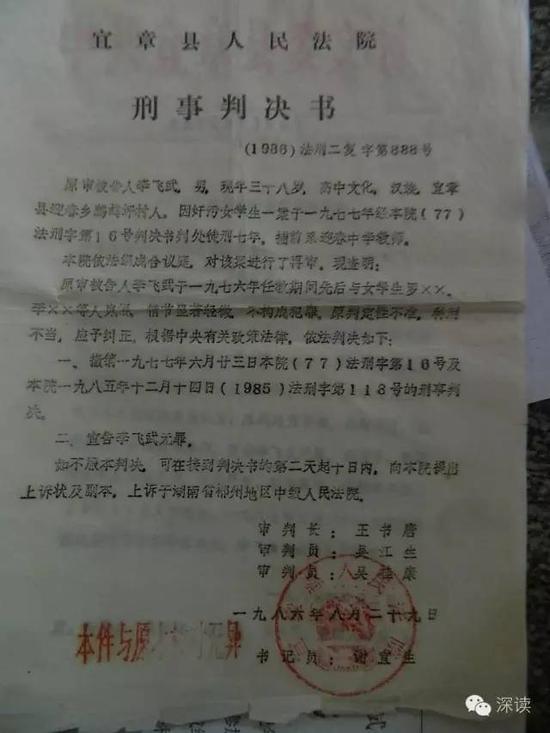 宜章县人民法院
刑事判决书
(1986)法刑二复字第888号
原审被告人李飞武，男，现年三十八岁，高中文化，汉族，宜章
县迎春乡鹧鸪坪村人。因奸污女学生一案于一九七七年经本院(77)
法刑字第16号判决书判处徒刑七年。捕前系迎春中学教师。
本院依法组成合议庭，对该案进行了再审。现查明：
原审被告人李飞武于一九七六年任教期间先后与女学生罗××、
李××等人 情节显著轻微，不构成犯罪，原判定性不准，
不当，应予纠正。根据中央有关政策法律，依法判决如下：
一、撤销一九七七年六月廿三日本院(77)法刑字第16号及
本院一九八五年十二月十四日(1985)法刑字第118号的刑事判
决。
二、宣告李飞武无罪。
如不服本判决，可在接到判决书的第二天起十日内，向本院提出
上诉状及副本，上诉于湖南省郴州地区中级人民法院。
审判长：王书唐
审判员：吴江生
审判员：吴 康
一九八六年八月二十九日
本件与原本 无异
书记员：谢宜生
深读